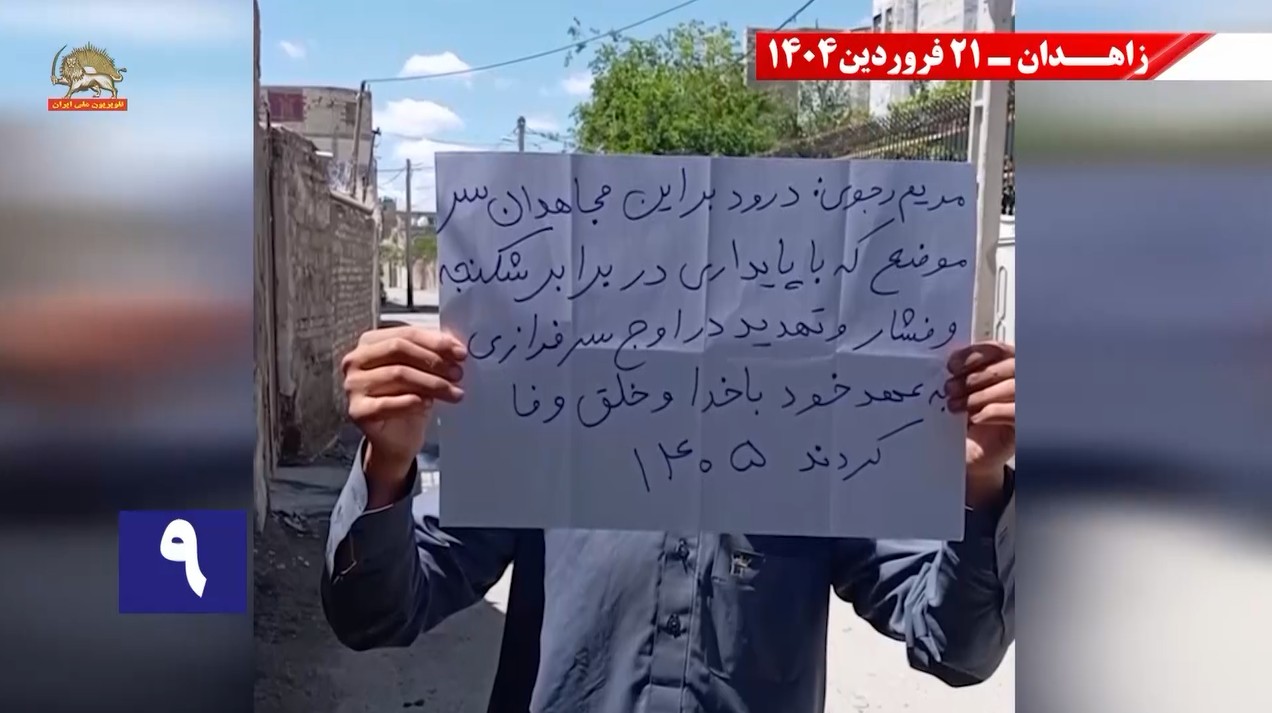 تلویزیون ملی ایران
زاهدان - ۲۱ فروردین ۱۴۰۴
مریم رجوی: درود بر این مجاهدان سر
موضع که با پایداری در برابر شکنجه
و فشار و تهدید در اوج سرفرازی
به عهد خود با خدا و خلق وفا
کردند ۱۴۰۵
۹